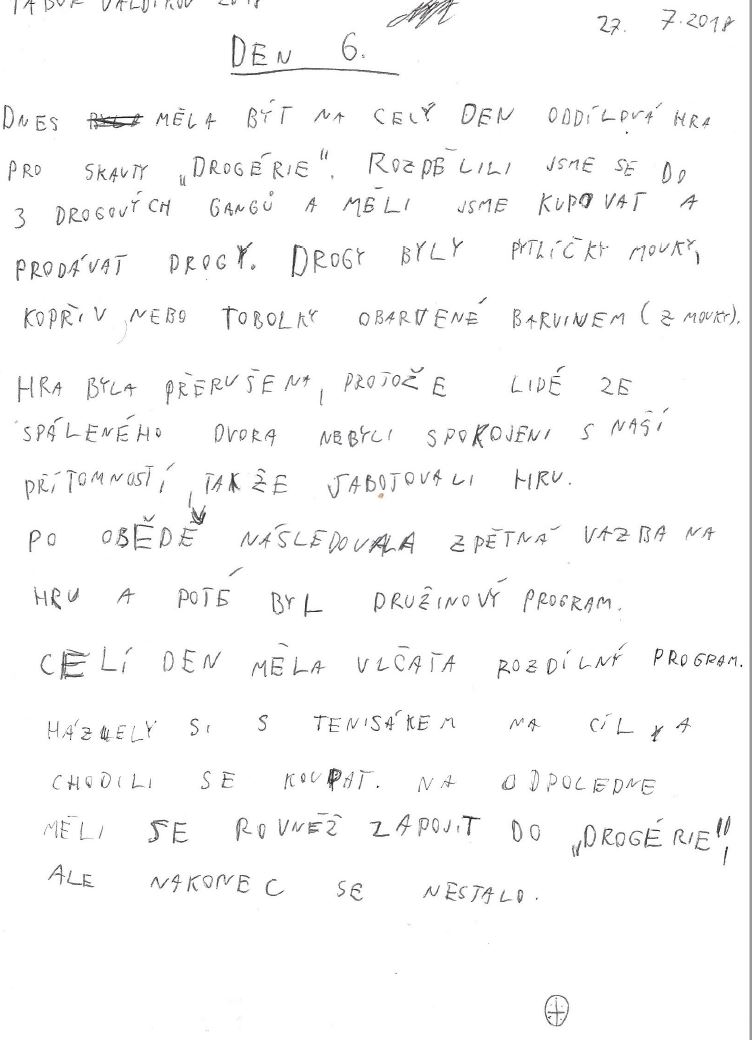 TÁBOR VALDÍKOV 2018
27. 7.2018
DEN 6.
DNES MĚLA BÝT NA CELÝ DEN ODDÍLOVÁ HRA
PRO SKAUTY „DROGÉRIE“. ROZDĚLILI JSME SE DO
3 DROGOVÝCH GANGŮ A MĚLI JSME KUPOVAT A
PRODÁVAT DROGY. DROGY BYLY PYTLÍČKY MOUKY,
KOPŘIV NEBO TOBOLKY OBARVENÉ BARVINEM (Z MOUKY).
HRA BYLA PŘERUŠENA, PROTOŽE LIDÉ ZE
SPÁLENÉHO DVORA NEBYLI SPOKOJENI S NAŠÍ
PŘÍTOMNOSTÍ, TAKŽE SABOTOVALI HRU.
PO OBĚDĚ NÁSLEDOVALA ZPĚTNÁ VAZBA NA
HRU A POTÉ BYL DRUŽINOVÝ PROGRAM.
CELÍ DEN MĚLA VLČATA ROZDÍLNÝ PROGRAM.
HÁZELY SI S TENISÁKEM NA CÍL A
CHODILI SE KOUPAT. NA ODPOLEDNE
MĚLI SE ROVNĚŽ ZAPOJIT DO „DROGÉRIE“,
ALE NAKONEC SE NESTALO.